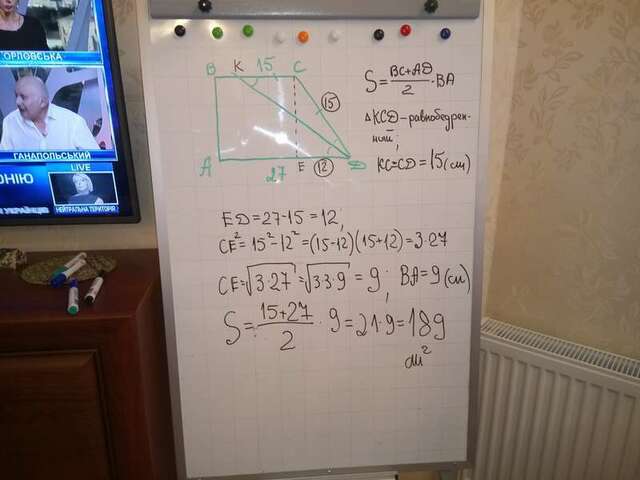 ОРЛОВСЬКА
ГАНАПОЛЬСЬКИЙ
LIVE
НЕЙТРАЛЬНА ТЕРИТОРІЯ
B K 15 C
15
A 27 E 12 D
S=BC+AD/2·BA
ΔKCD–равнобедрен-
ный;
KC=CD=15(см)
ED=27-15=12;
CE²=15²-12²=(15-12)(15+12)=3·27
CE=√3·27=√3·3·9=9; BA=9(см)
S=15+27/2·9=21·9=189
см²